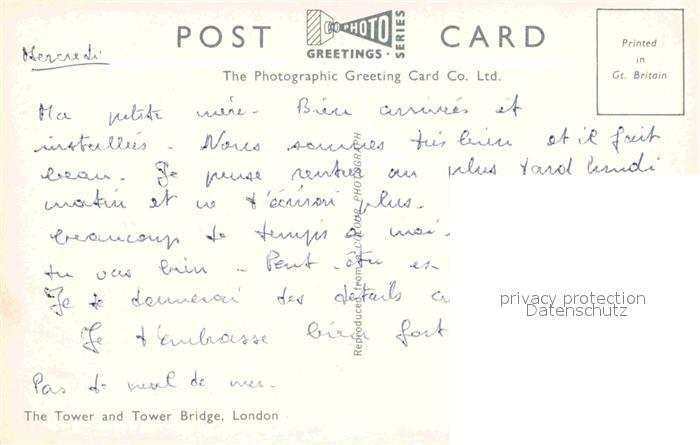 POST CARD
PHOTO
GREETINGS · SERIES
Printed
in
Gt. Britain
Mercredi
The Photographic Greeting Card Co. Ltd.
Ma petite mère - Bien arrivées et
installées. Nous sommes très bien et il fait
beau. Je pense rentrer au plus tard lundi
matin et ne t'écrirai plus.
beaucoup de temps à moi.
tu vas bien - Peut-être es-
Je te donnerai des détails
Je t'embrasse bien fort
Pas de mal de mer.
Reproduced from a COLOUR PHOTOGRAPH
privacy protection
Datenschutz
The Tower and Tower Bridge, London